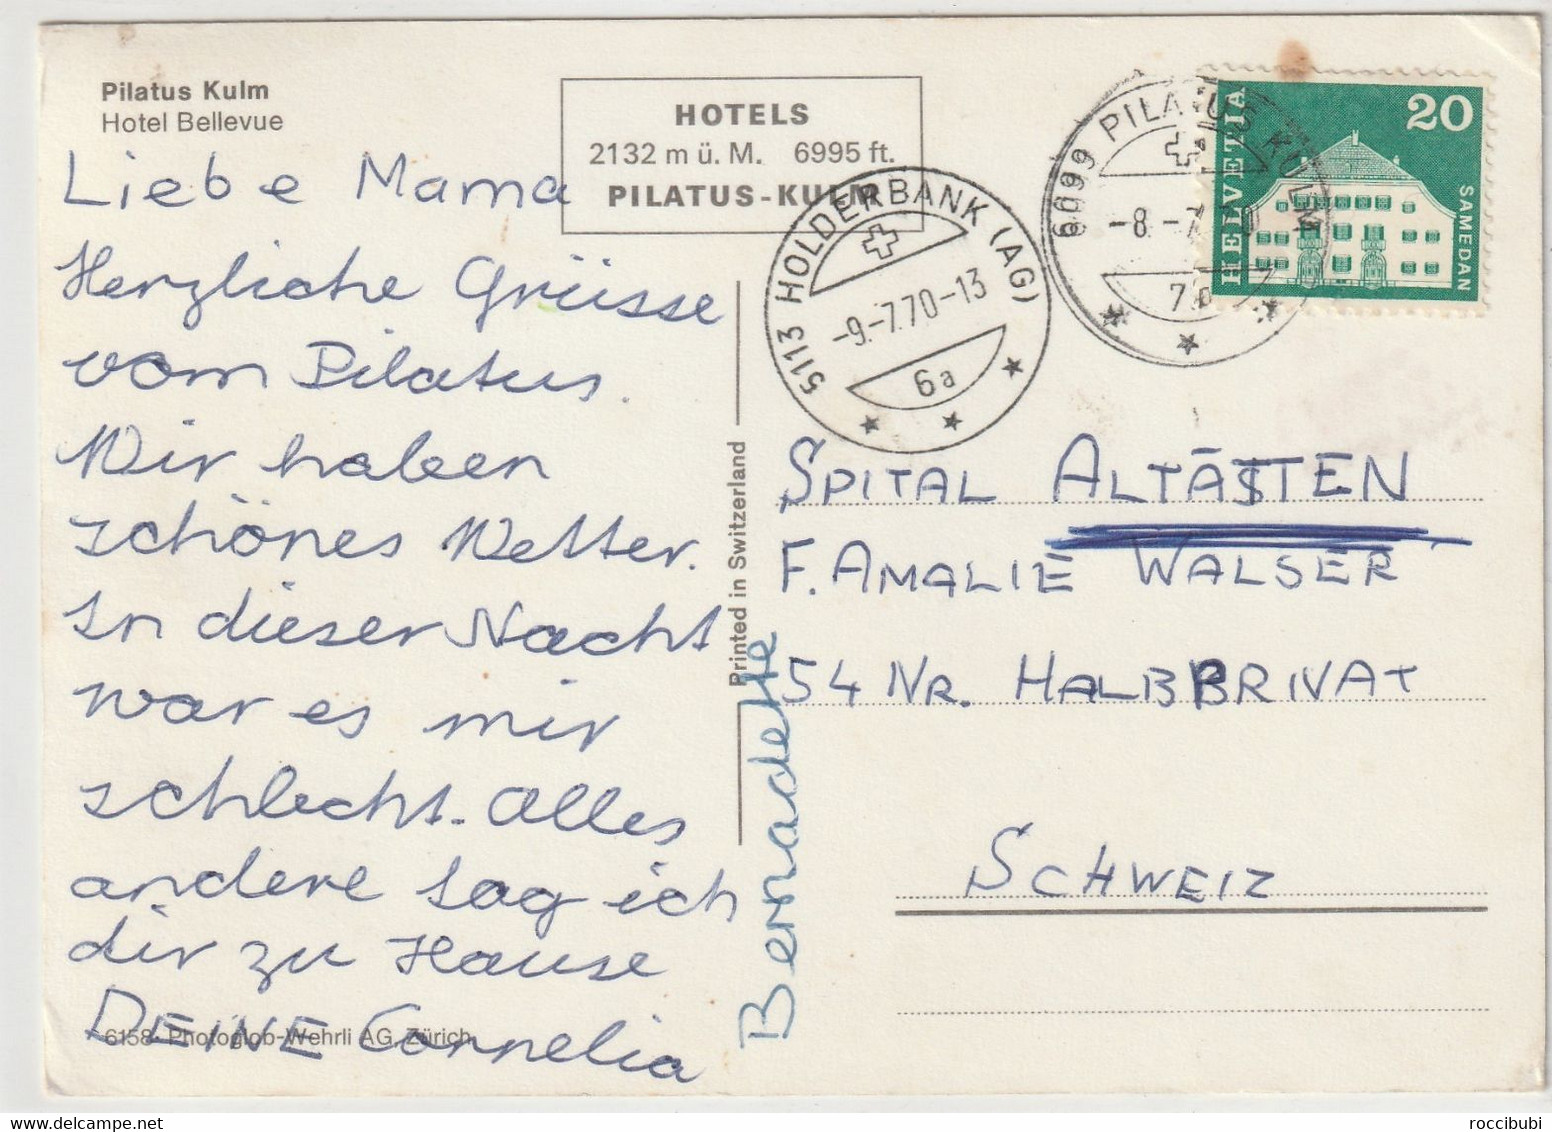 Pilatus Kulm
Hotel Bellevue
HOTELS
2132 m ü. M. 6995 ft.
PILATUS-KULM
5113 HOLDERBANK (AG)
-9.-7.70-13
6a
6099 PILATUS KULM
-8.-7.
HELVETIA
20
SAMEDAN
Liebe Mama
Herzliche Grüsse
vom Pilatus.
Wir haben
schönes Wetter.
In dieser Nacht
war es mir
schlecht. Alles
andere sag ich
dir zu Hause
DEINE Cornelia
Bernadette
6158 Photoglob-Wehrli AG, Zürich
Printed in Switzerland
SPITAL ALTÄSTTEN
F. AMALIE WALSER
54 NR. HALBPRIVAT
SCHWEIZ
roccibubi